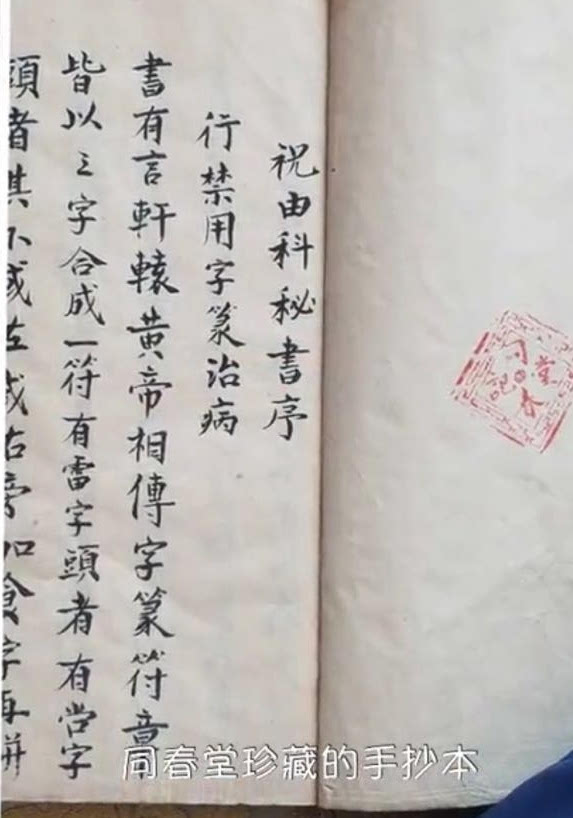 祝由科秘書序
行禁用字篆治病
書有言軒轅黄帝相傳字篆符章
皆以三字合成一符有雷字頭者有尚字
頭者其下或左或右旁加食字再拼
同春堂珍藏的手抄本